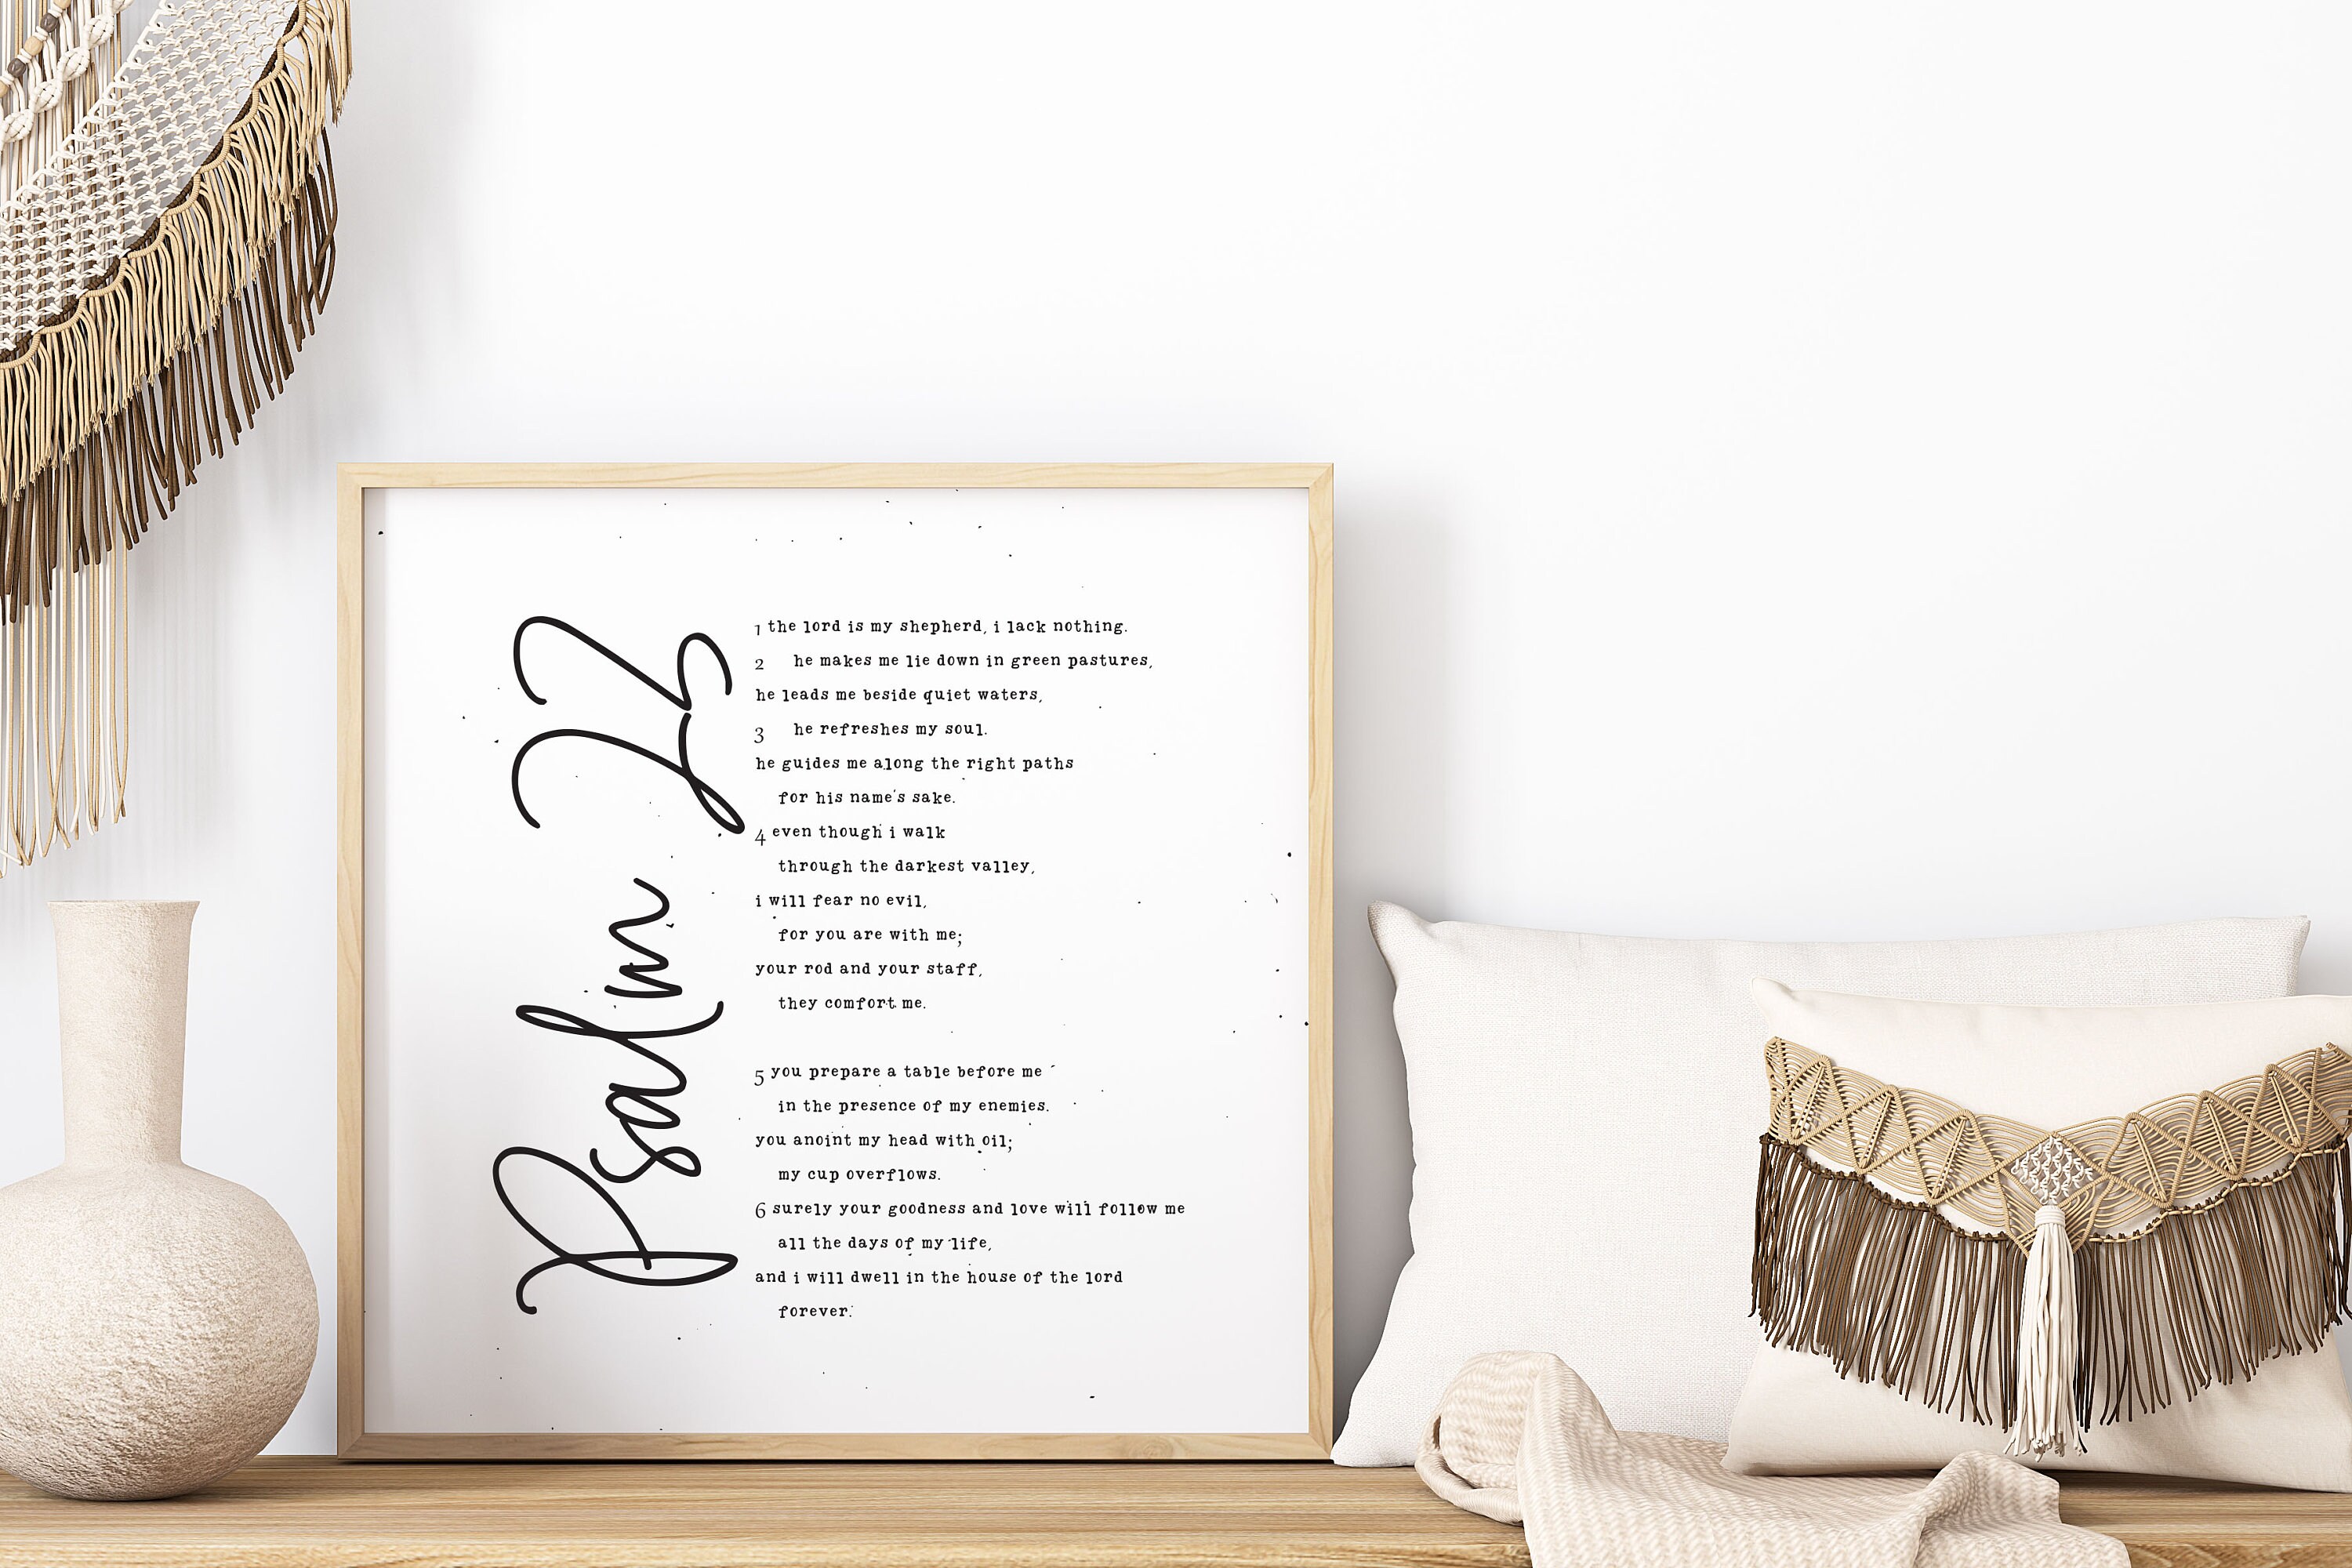 Psalm 23
1 the lord is my shepherd, i lack nothing.
2 he makes me lie down in green pastures,
he leads me beside quiet waters,
3 he refreshes my soul.
he guides me along the right paths
for his name's sake.
4 even though i walk
through the darkest valley,
i will fear no evil,
for you are with me;
your rod and your staff,
they comfort me.
5 you prepare a table before me
in the presence of my enemies.
you anoint my head with oil;
my cup overflows.
6 surely your goodness and love will follow me
all the days of my life,
and i will dwell in the house of the lord
forever.